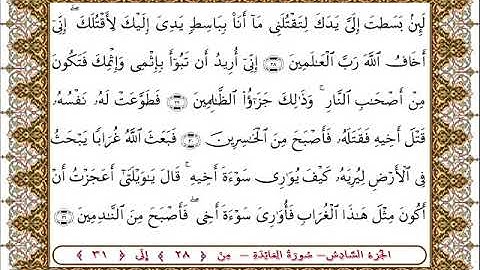 لَئِنۢ بَسَطتَ إِلَيَّ يَدَكَ لِتَقْتُلَنِي مَآ أَنَا۠ بِبَاسِطٖ يَدِيَ إِلَيْكَ لِأَقْتُلَكَۖ إِنِّيٓ
أَخَافُ ٱللَّهَ رَبَّ ٱلْعَٰلَمِينَ ۝٢٨ إِنِّيٓ أُرِيدُ أَن تَبُوٓأَ بِإِثْمِي وَإِثْمِكَ فَتَكُونَ
مِنْ أَصْحَٰبِ ٱلنَّارِۚ وَذَٰلِكَ جَزَٰٓؤُاْ ٱلظَّٰلِمِينَ ۝٢٩ فَطَوَّعَتْ لَهُۥ نَفْسُهُۥ
قَتْلَ أَخِيهِ فَقَتَلَهُۥ فَأَصْبَحَ مِنَ ٱلْخَٰسِرِينَ ۝٣٠ فَبَعَثَ ٱللَّهُ غُرَابٗا يَبْحَثُ
فِي ٱلْأَرْضِ لِيُرِيَهُۥ كَيْفَ يُوَٰرِي سَوْءَةَ أَخِيهِۚ قَالَ يَٰوَيْلَتَىٰٓ أَعَجَزْتُ أَنْ
أَكُونَ مِثْلَ هَٰذَا ٱلْغُرَابِ فَأُوَٰرِيَ سَوْءَةَ أَخِيۖ فَأَصْبَحَ مِنَ ٱلنَّٰدِمِينَ ۝٣١
الجزء السادس - سورة المائدة - من ﴿ ٢٨ ﴾ إلى ﴿ ٣١ ﴾